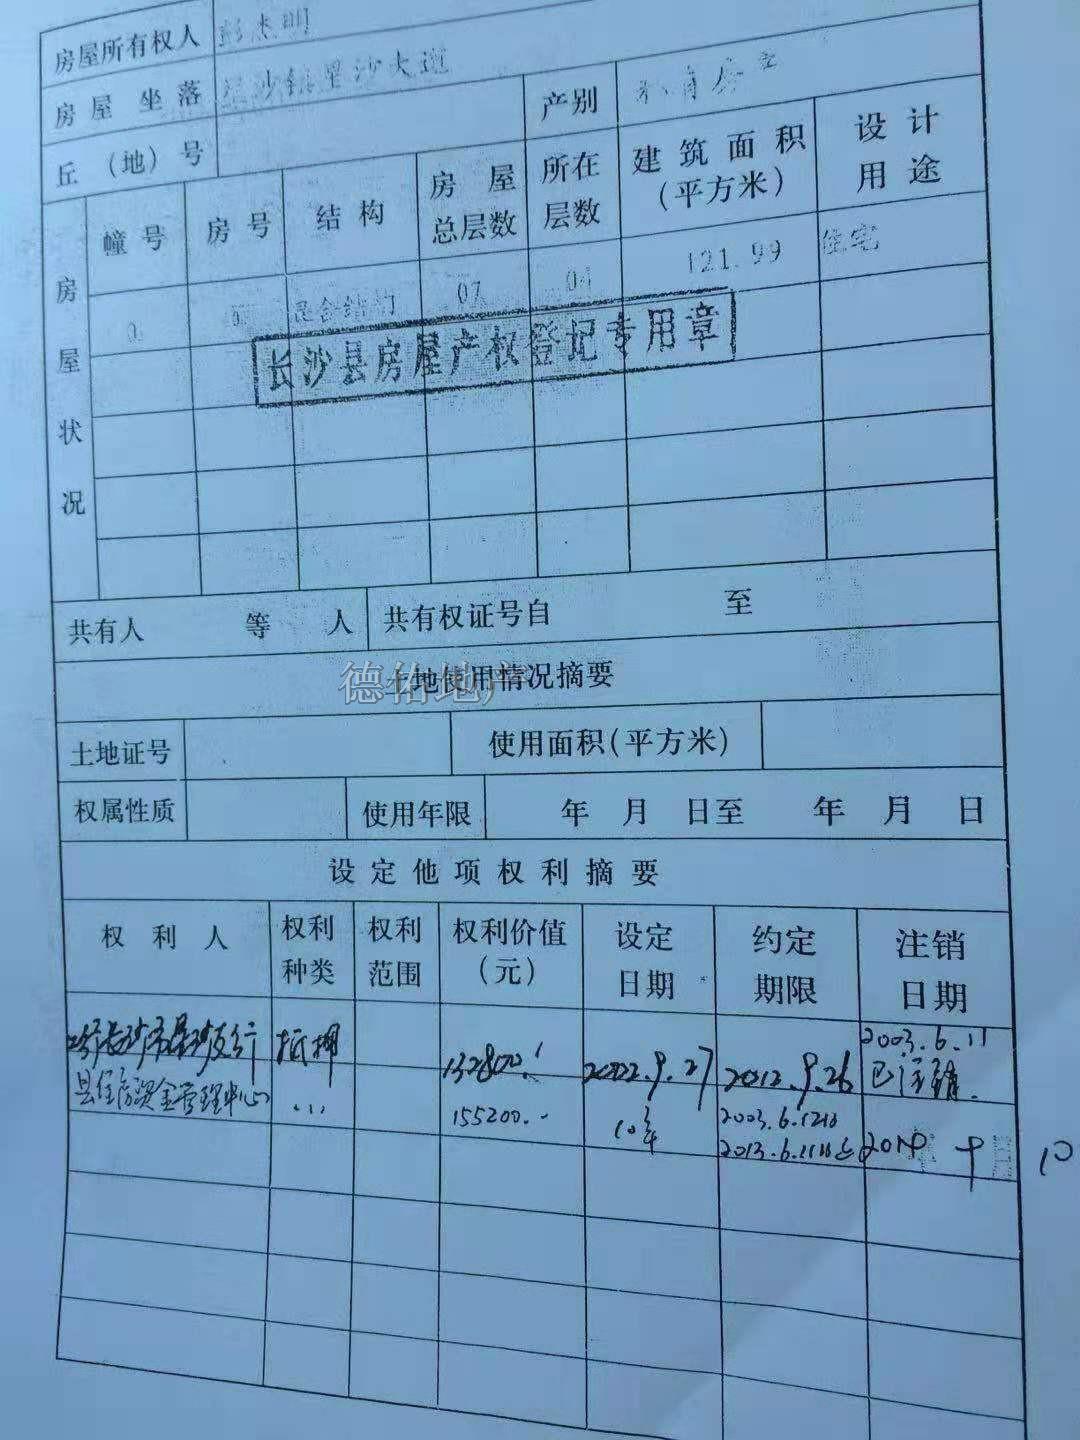 房屋所有权人 彭志明
房屋坐落 星沙镇星沙大道
丘（地）号 产别 私有房产
房屋状况
幢号 房号 结构 房屋总层数 所在层数 建筑面积（平方米） 设计用途
混合结构 07 04 121.99 住宅
长沙县房屋产权登记专用章
共有人 等 人 共有权证号自 至
土地使用情况摘要
德佑地产
土地证号 使用面积(平方米)
权属性质 使用年限 年 月 日至 年 月 日
设定他项权利摘要
权利人 权利种类 权利范围 权利价值（元） 设定日期 约定期限 注销日期
长沙市星沙支行 抵押 132800. 2002.9.27 2012.9.26 2003.6.11 已注销.
县住房资金管理中心 ... 155200.- 10年 2003.6.12日 2013.6.11日止